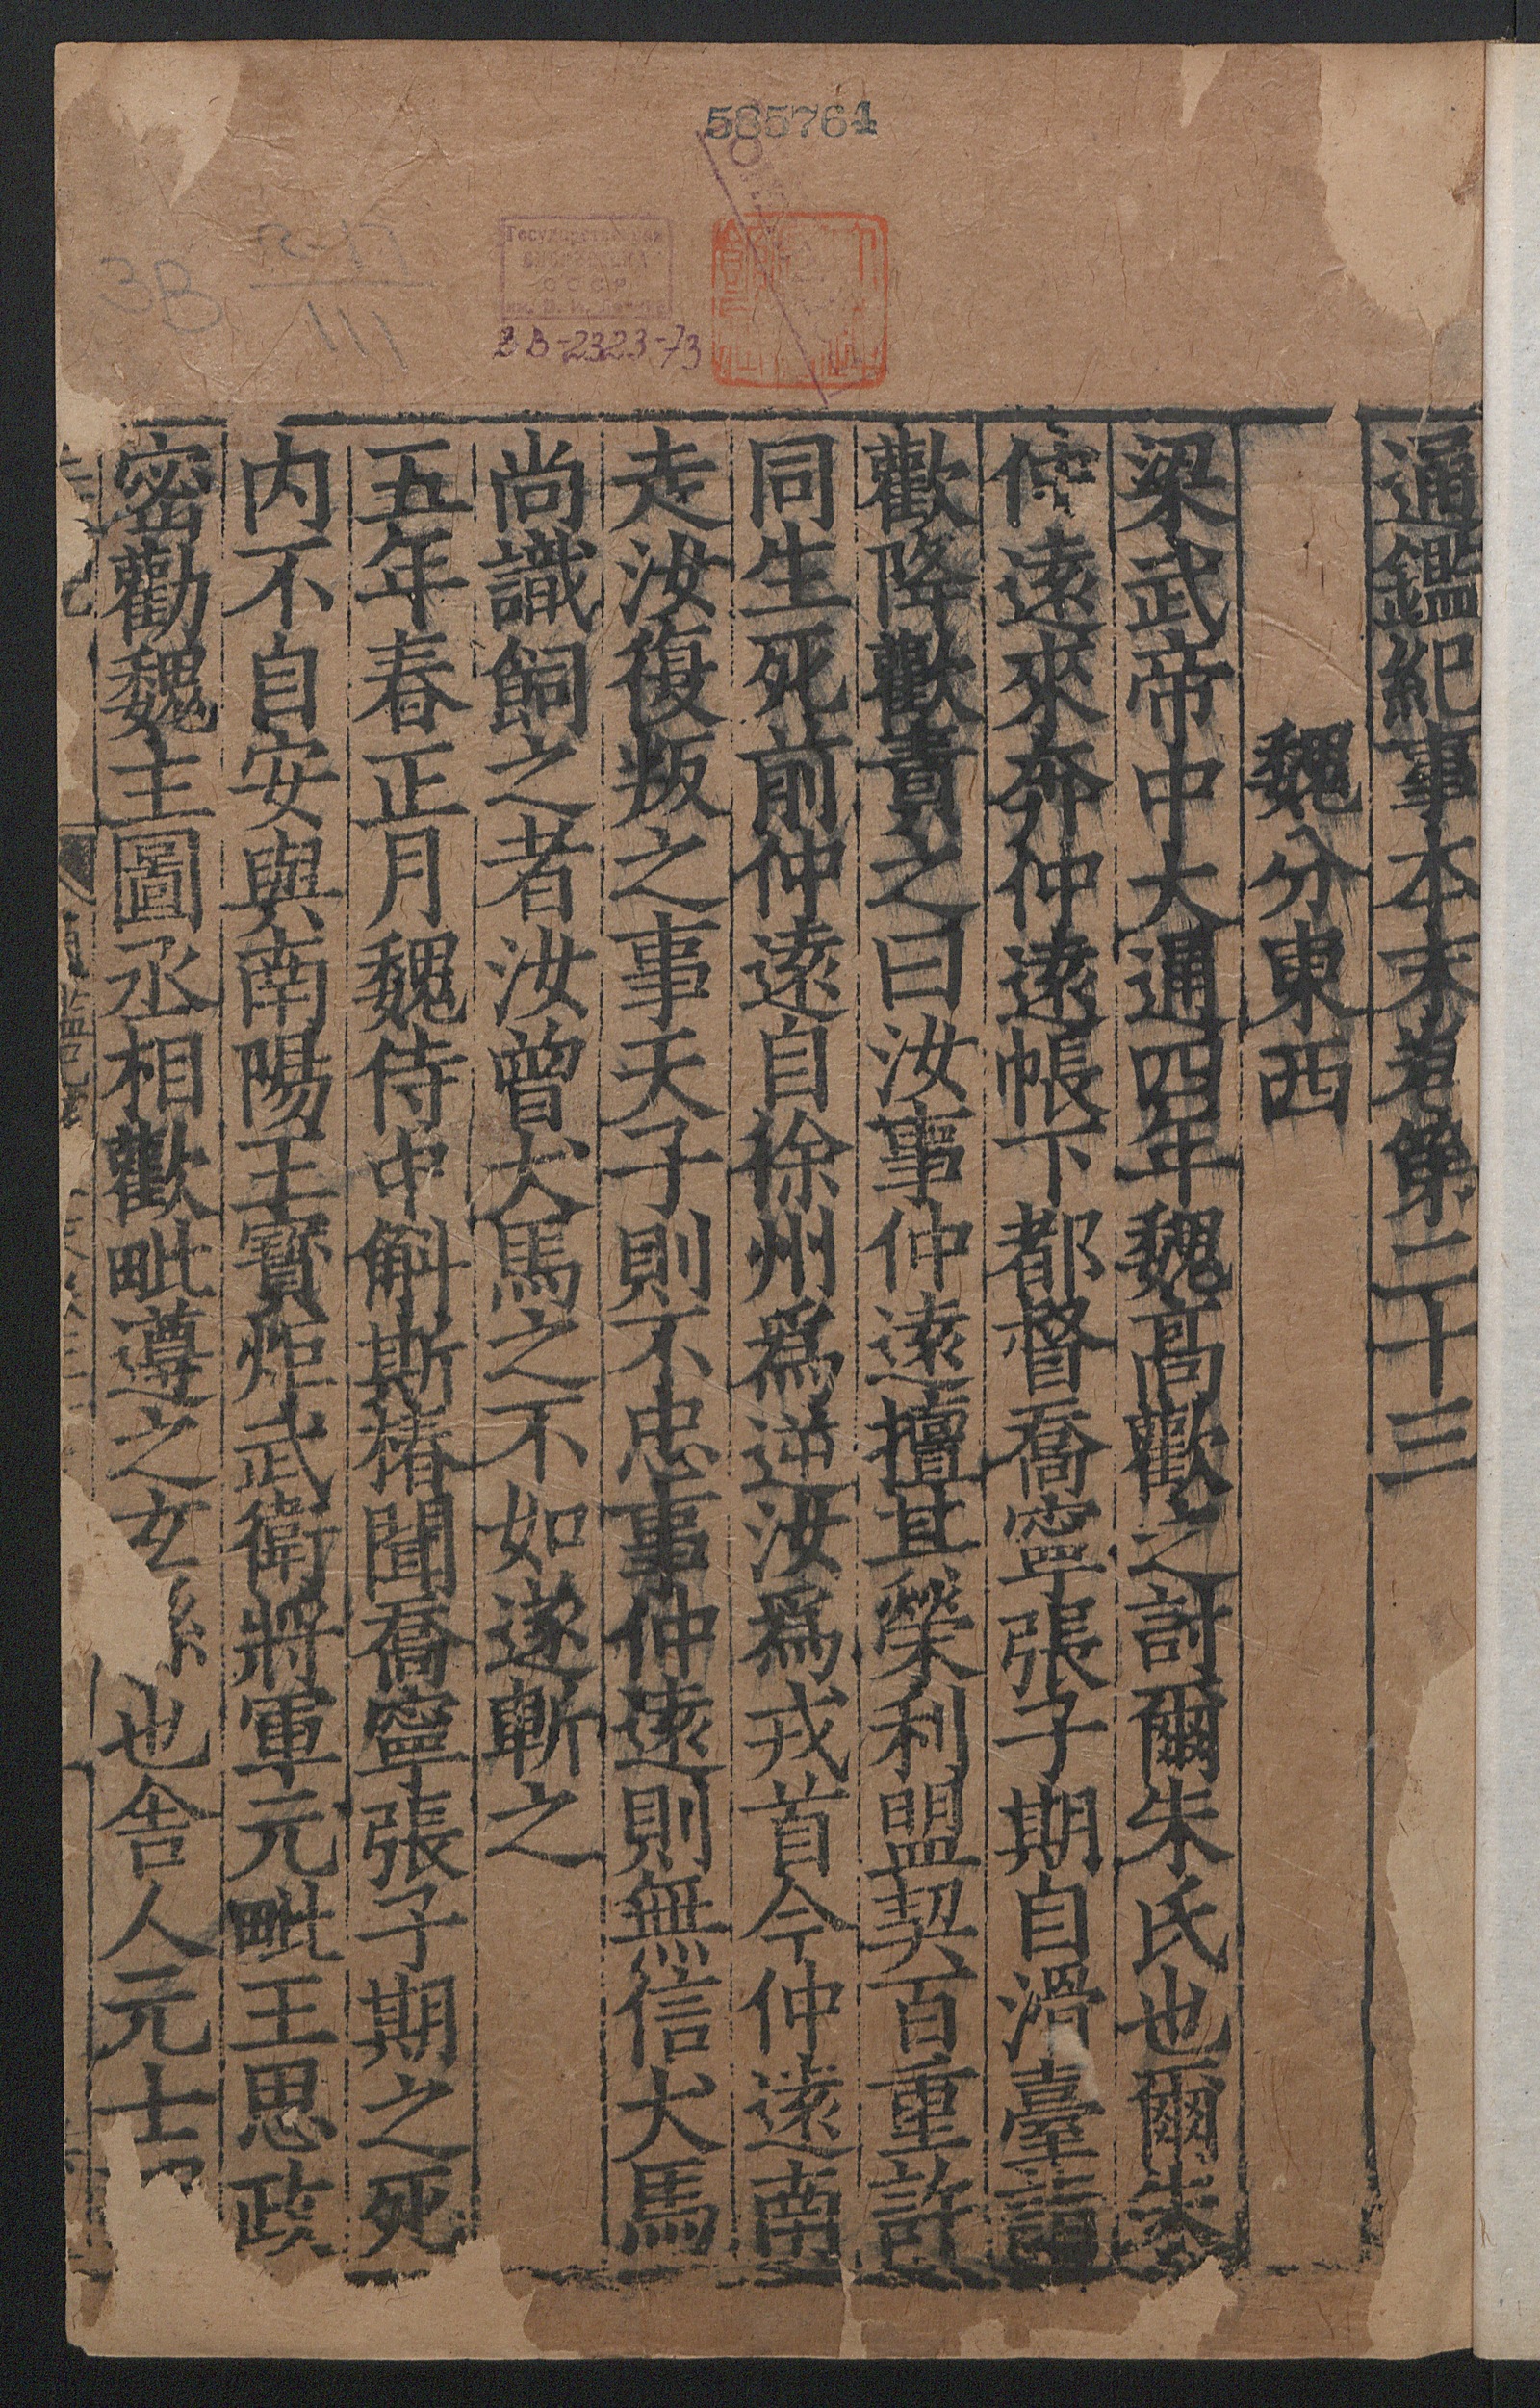 585764
Государственная
библиотека
СССР
им. В. И. Ленина
ЗВ
111
ЗВ-2323-73
通鑑紀事本末卷第二十三
魏分東西
梁武帝中大通四年魏高歡之討爾朱氏也爾朱
仲遠來奔仲遠帳下都督喬寧張子期自滑臺詣
歡降歡責之曰汝事仲遠擅其榮利盟契百重許
同生死前仲遠自徐州爲逆汝爲戎首今仲遠南
走汝復叛之事天子則不忠事仲遠則無信犬馬
尚識飼之者汝曾犬馬之不如遂斬之
五年春正月魏侍中斛斯椿聞喬寧張子期之死
內不自安與南陽王寶炬武衛將軍元毗王思政
密勸魏主圖丞相歡毗遵之玄孫也舍人元士